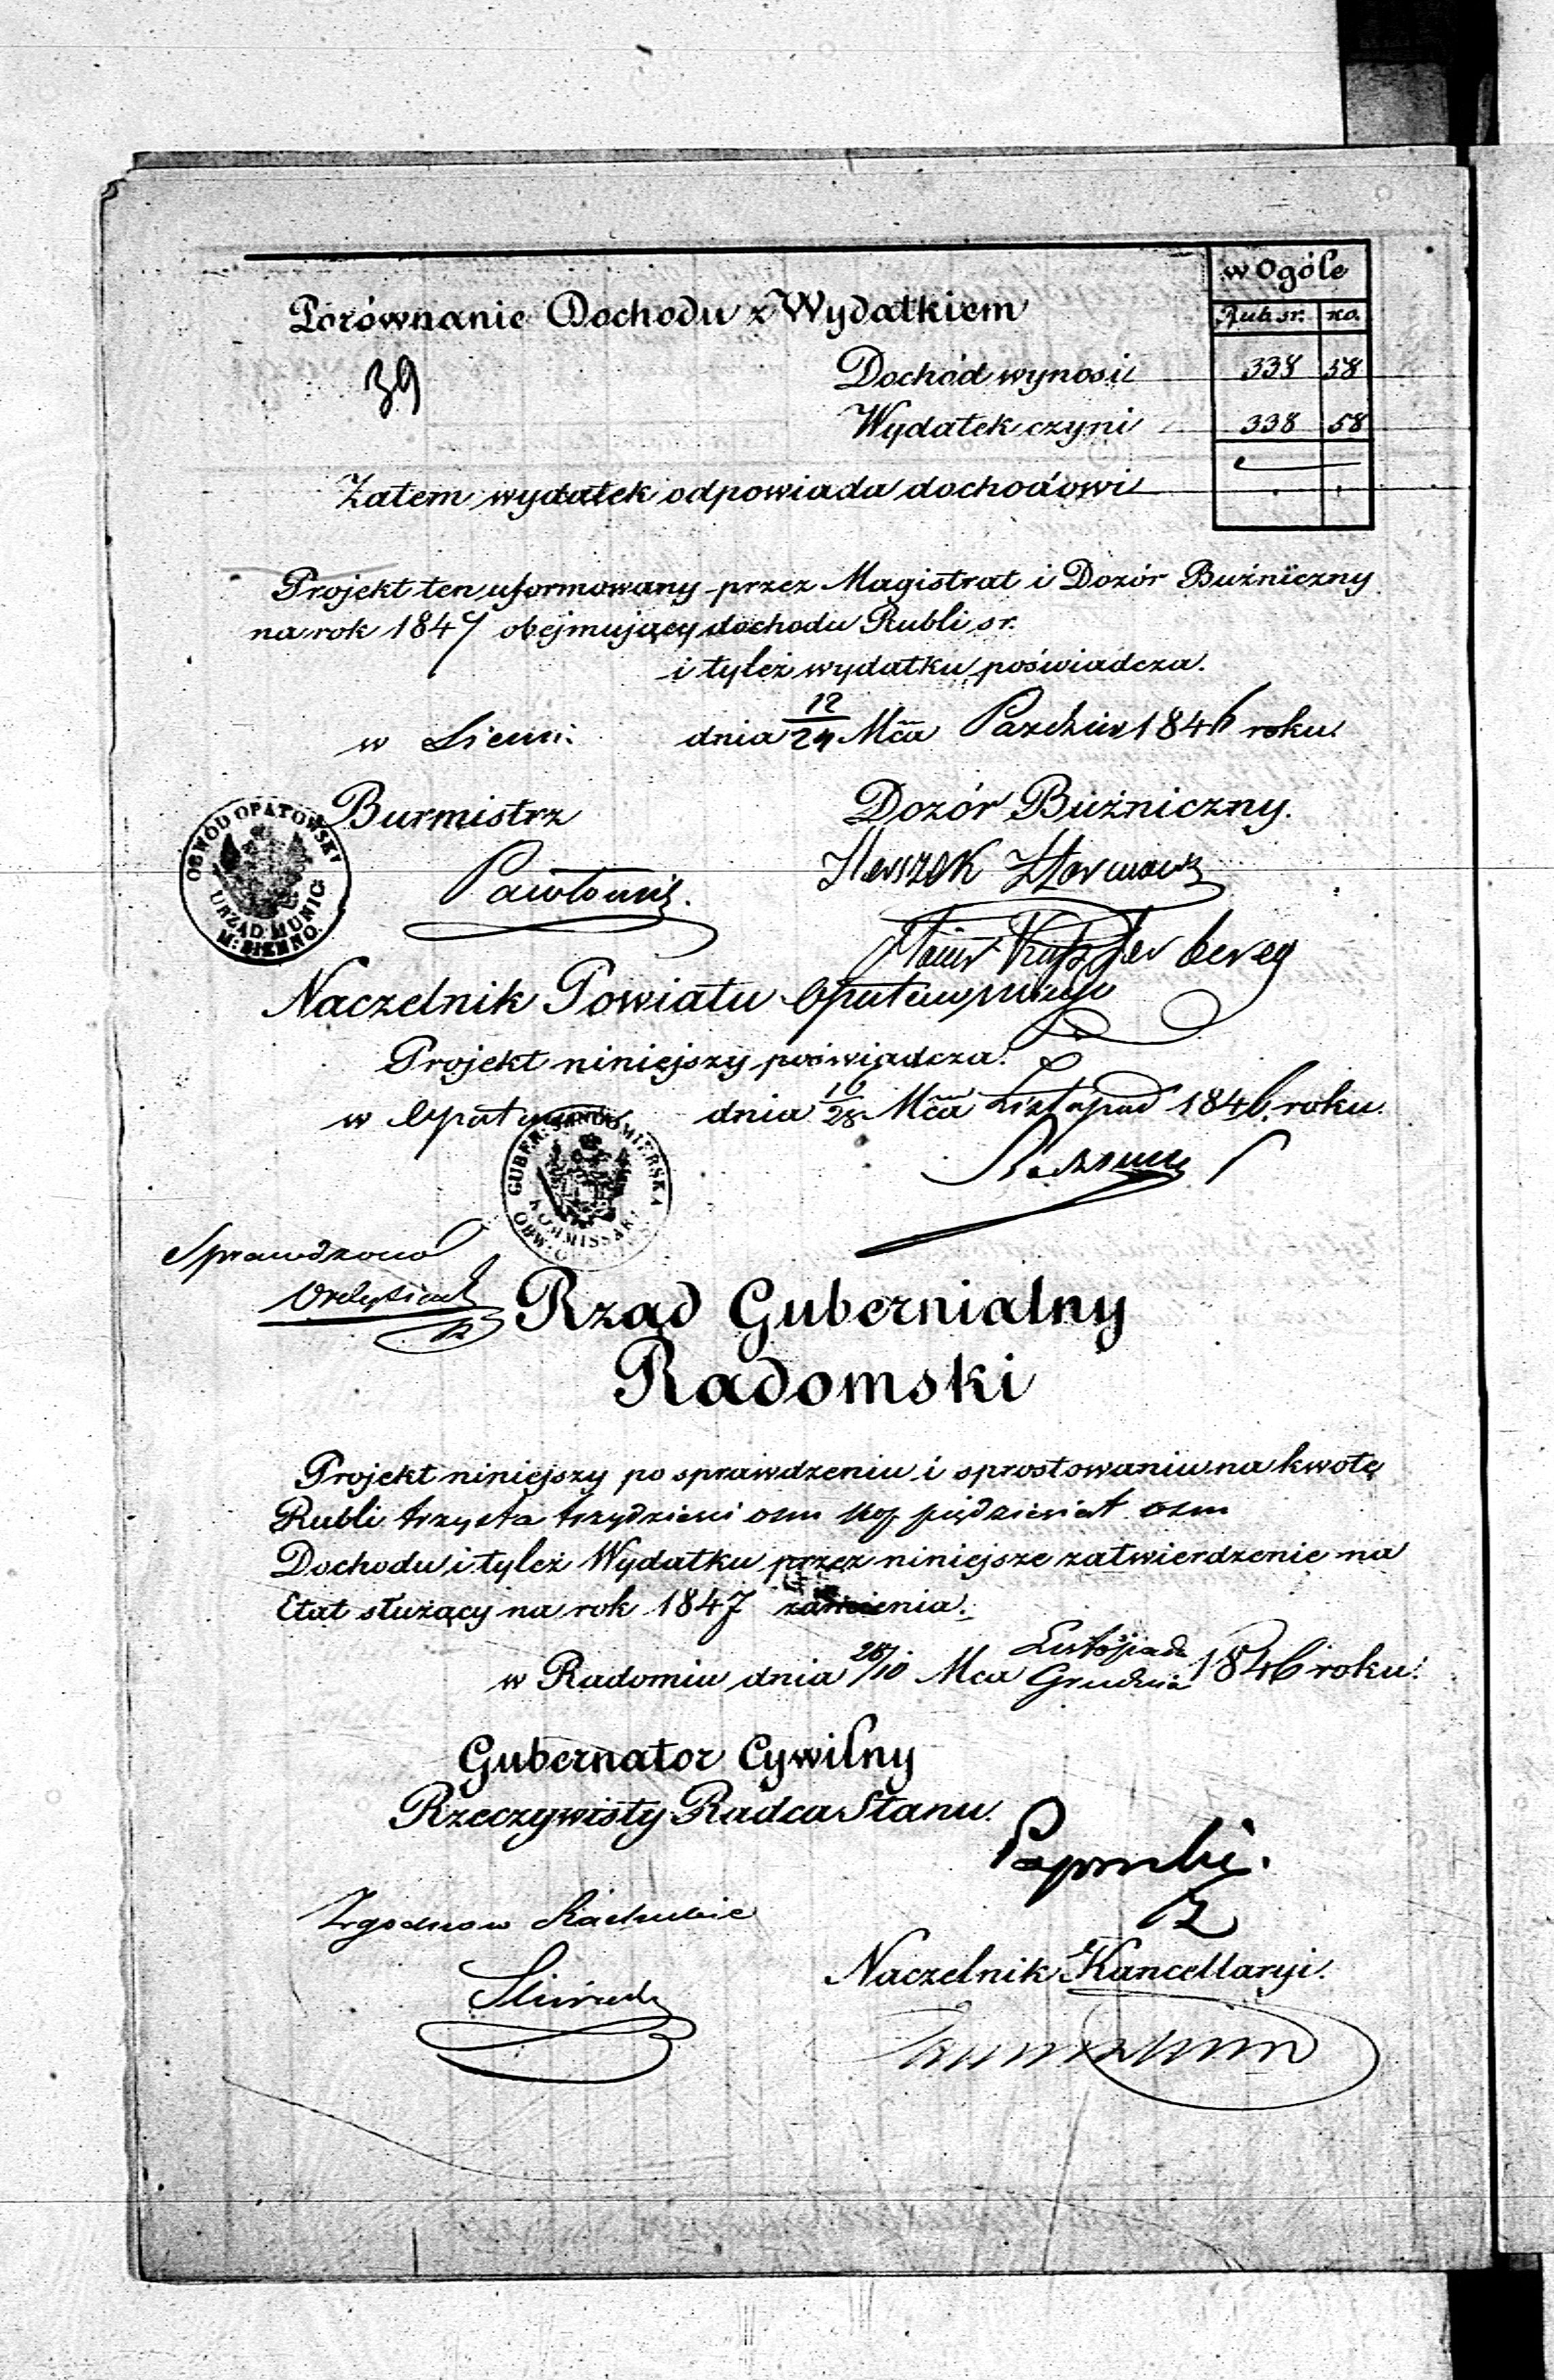 w Ogóle
Porównanie Dochodu z Wydatkiem
Rub. sr. ko.
39
Dochód wynosi 338 58
Wydatek czyni 338 58
Zatem wydatek odpowiada dochodowi
Projekt ten uformowany przez Magistrat i Dozór Bużniczny
na rok 1847 obejmujący dochodu Rubli sr.
i tyleż wydatku poświadcza.
w Siennie dnia 12/24 Mca Pazdzier 1846 roku.
Burmistrz Dozór Bużniczny.
OBWÓD OPATOWSKI
URZĄD MUNIC
M: SIENNO.
Herszek
Naczelnik Powiatu Opatowskiego
Projekt niniejszy poświadcza.
w Opatowie dnia 16/28 Mca Listopad 1846 roku.
GUBER. SANDOMIERSKA
KOMMISSAR
OBW. O
Sprawdzono
Rząd Gubernialny
Radomski
Projekt niniejszy po sprawdzeniu i sprostowaniu na kwotę
Rubli trzysta trzydzieści osm kop pięćdziesiąt osm
Dochodu i tyleż Wydatku przez niniejsze zatwierdzenie na
Etat służący na rok 1847 zamienia.
w Radomiu dnia 28/10 Mca Listopada Grudnia 1846 roku.
Gubernator Cywilny
Rzeczywisty Radca Stanu.
Zgodno w Rachubie
Naczelnik Kancellaryi.